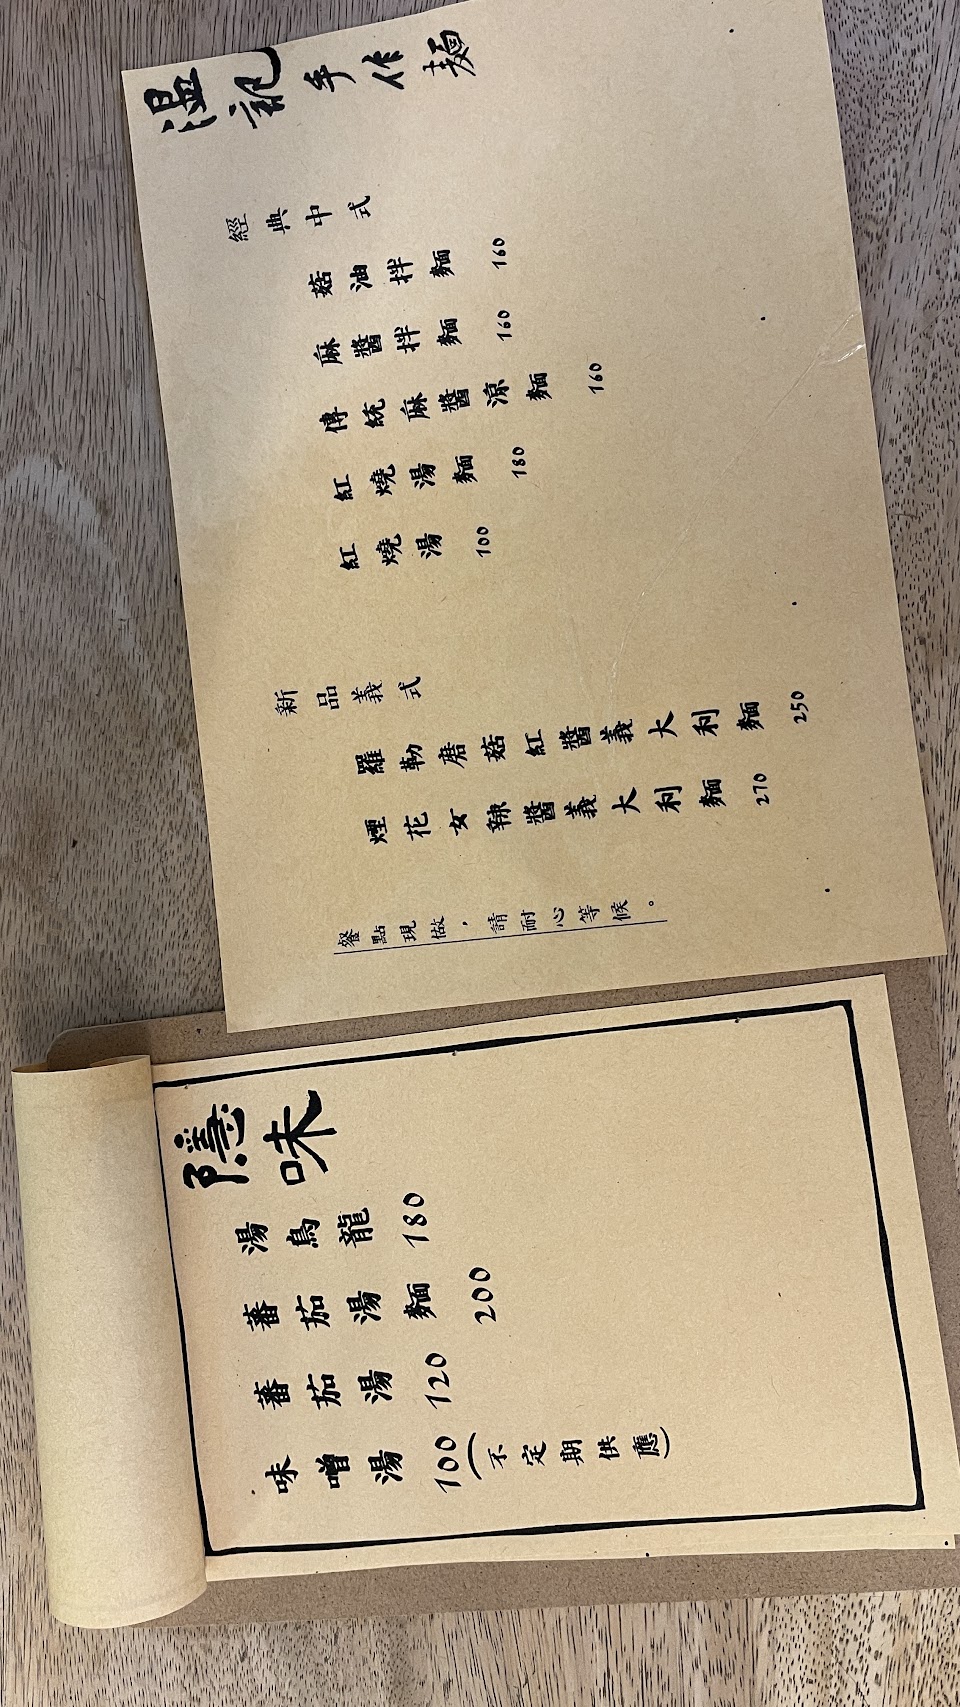 溫記手作麵
經典中式
菇油拌麵 160
麻醬拌麵 160
傳統麻醬涼麵 160
紅燒湯麵 180
紅燒湯 100
新品義式
羅勒磨菇紅醬義大利麵 250
煙花女辣醬義大利麵 270
餐點現做，請耐心等候。
隱味
湯烏龍 180
蕃茄湯麵 200
蕃茄湯 120
味噌湯 100(不定期供應)